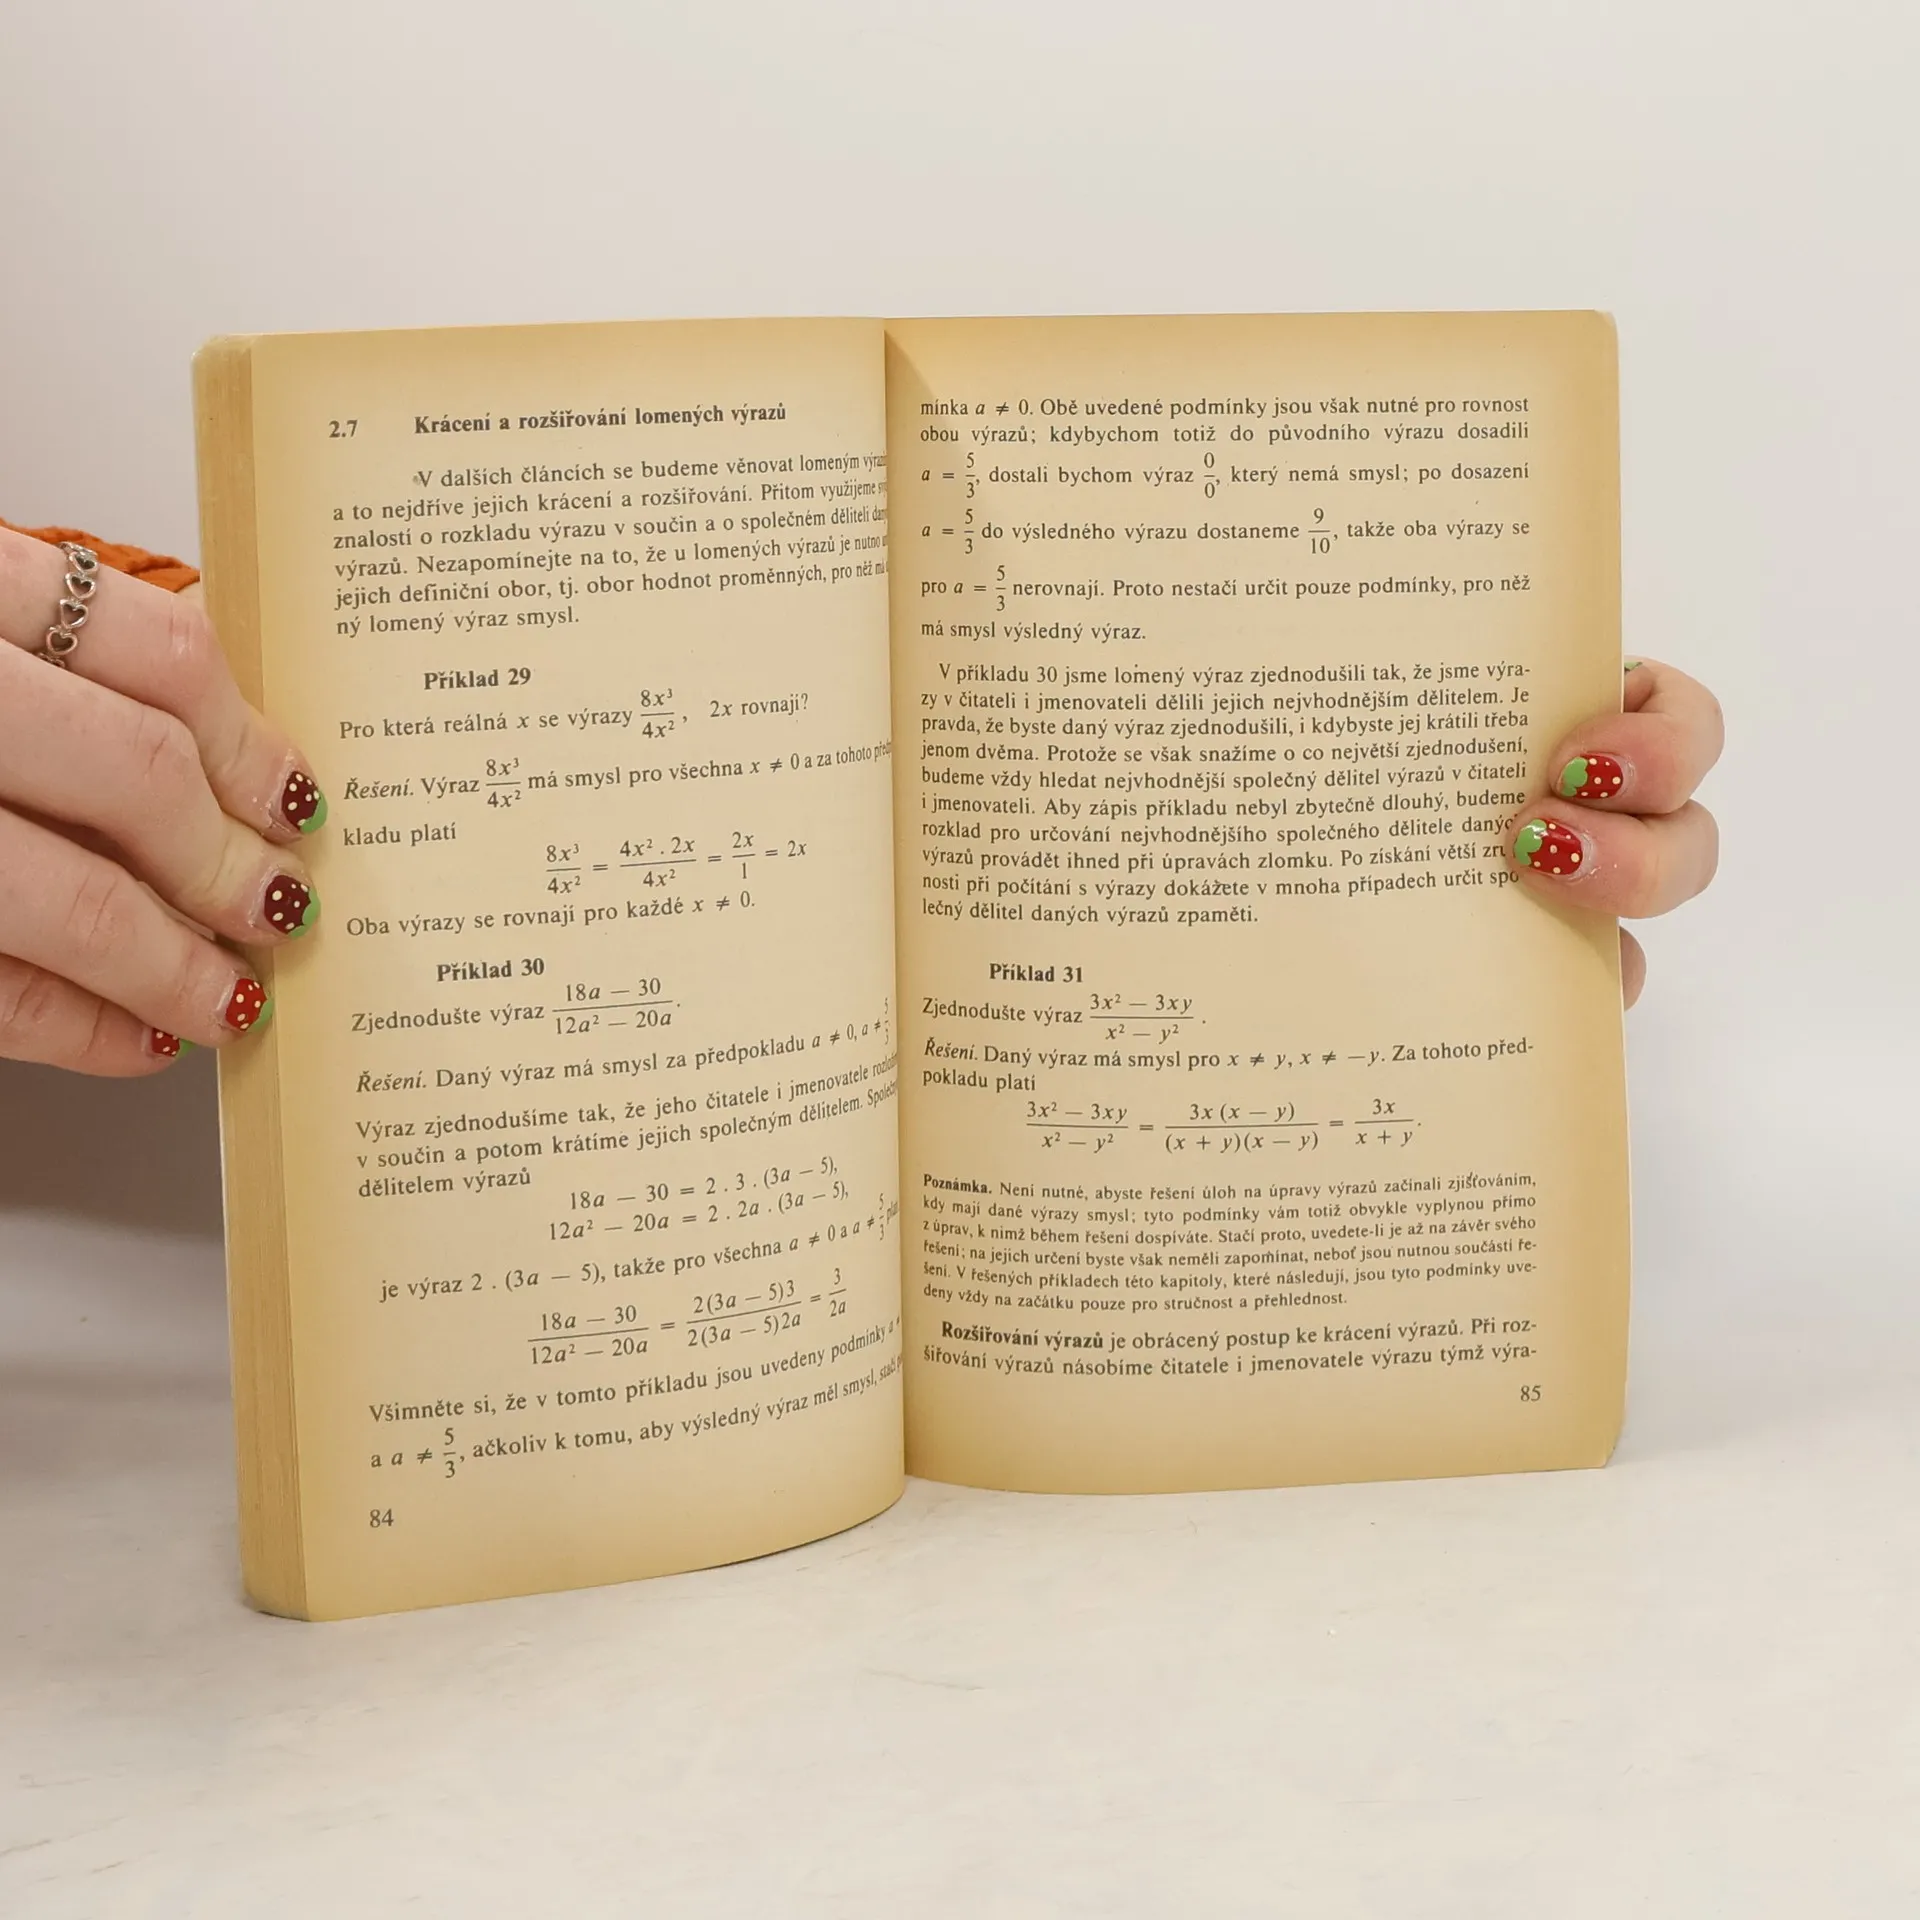 2.7 Krácení a rozšiřování lomených výrazů
V dalších článcích se budeme věnovat lomeným
a to nejdříve jejich krácení a rozšiřování. Přitom využijeme
znalostí o rozkladu výrazu v součin a o společném děliteli
výrazů. Nezapomínejte na to, že u lomených výrazů je nutno
jejich definiční obor, tj. obor hodnot proměnných, pro něž
ný lomený výraz smysl.
Příklad 29
Pro která reálná x se výrazy 8x³/4x², 2x rovnají?
Řešení. Výraz 8x³/4x² má smysl pro všechna x ≠ 0 a za tohoto
kladu platí
8x³/4x² = 4x² . 2x/4x² = 2x/1 = 2x
Oba výrazy se rovnají pro každé x ≠ 0.
Příklad 30
Zjednodušte výraz 18a — 30/12a² — 20a.
Řešení. Daný výraz má smysl za předpokladu a ≠ 0, a ≠ 5/3
Výraz zjednodušíme tak, že jeho čitatele i jmenovatele
v součin a potom krátíme jejich společným dělitelem.
dělitelem výrazů
18a — 30 = 2 . 3 . (3a — 5),
12a² — 20a = 2 . 2a . (3a — 5),
je výraz 2 . (3a — 5), takže pro všechna a ≠ 0 a a ≠ 5/3
18a — 30/12a² — 20a = 2(3a — 5)3/2(3a — 5)2a = 3/2a
Všimněte si, že v tomto příkladu jsou uvedeny podmínky a
a a ≠ 5/3, ačkoliv k tomu, aby výsledný výraz měl smysl,
84
mínka a ≠ 0. Obě uvedené podmínky jsou však nutné pro rovnost
obou výrazů; kdybychom totiž do původního výrazu dosadili
a = 5/3, dostali bychom výraz 0/0, který nemá smysl; po dosazení
a = 5/3 do výsledného výrazu dostaneme 9/10, takže oba výrazy se
pro a = 5/3 nerovnají. Proto nestačí určit pouze podmínky, pro něž
má smysl výsledný výraz.
V příkladu 30 jsme lomený výraz zjednodušili tak, že jsme výra-
zy v čitateli i jmenovateli dělili jejich nejvhodnějším dělitelem. Je
pravda, že byste daný výraz zjednodušili, i kdybyste jej krátili třeba
jenom dvěma. Protože se však snažíme o co největší zjednodušení,
budeme vždy hledat nejvhodnější společný dělitel výrazů v čitateli
i jmenovateli. Aby zápis příkladu nebyl zbytečně dlouhý, budeme
rozklad pro určování nejvhodnějšího společného dělitele
výrazů provádět ihned při úpravách zlomku. Po získání větší
nosti při počítání s výrazy dokážete v mnoha případech určit spo-
lečný dělitel daných výrazů zpaměti.
Příklad 31
Zjednodušte výraz 3x² — 3xy/x² — y².
Řešení. Daný výraz má smysl pro x ≠ y, x ≠ —y. Za tohoto před-
pokladu platí
3x² — 3xy/x² — y² = 3x (x — y)/(x + y)(x — y) = 3x/x + y.
Poznámka. Není nutné, abyste řešení úloh na úpravy výrazů začínali zjišťováním,
kdy mají dané výrazy smysl; tyto podmínky vám totiž obvykle vyplynou přímo
z úprav, k nimž během řešení dospíváte. Stačí proto, uvedete-li je až na závěr svého
řešení; na jejich určení byste však neměli zapomínat, neboť jsou nutnou součástí ře-
šení. V řešených příkladech této kapitoly, které následují, jsou tyto podmínky uve-
deny vždy na začátku pouze pro stručnost a přehlednost.
Rozšiřování výrazů je obrácený postup ke krácení výrazů. Při roz-
šiřování výrazů násobíme čitatele i jmenovatele výrazu týmž výra-
85